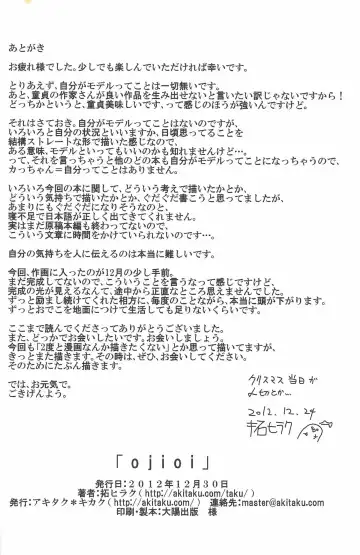 あとがき
お疲れ様でした。少しでも楽しんでいただければ幸いです。
とりあえず、自分がモデルってことは一切無いです。
あと、童貞の作家さんが良い作品を生み出せないと言いたい訳じゃないですから！
どっちかというと、童貞美味しいです、って感じのほうが強いんですけど。
それはさておき。自分がモデルってことはないのですが、
いろいろと自分の状況といいますか、日頃思ってることを
結構ストレートな形で描いた感じなので、
ある意味、モデルといってもいいのかも知れませんけど…。
って、それを言っちゃうと他のどの本も自分がモデルってことになっちゃうので、
カっちゃん＝自分ってことはありません。
いろいろ今回の本に関して、どういう考えで描いたかとか、
どういう気持ちで描いたとか、ぐだぐだ書こうと思ってましたが、
あまりにもぐだぐだになりそうなのと、
寝不足で日本語が正しく出てきてくれません。
実はまだ原稿本編も終わってないので、
こういう文章に時間をかけていられないのです…。
自分の気持ちを人に伝えるのは本当に難しいです。
今回、作画に入ったのが12月の少し手前。
まだ完成してないので、こういうことを言うなって感じですけど、
完成の光が見えるなんて、途中から正直なところ思えませんでした。
ずっと励まし続けてくれた相方に、毎度のことながら、本当に頭が下がります。
ずっとおでこを地面につけて生活しても足りないくらいです。
ここまで読んでくださってありがとうございました。
また、どっかでお会いしたいです。お会いしましょう。
今回も「2度と漫画なんか描きたくない」とか思って描いてますが、
きっとまた描きます。その時は、ぜひ、お会いしてください。
そのためにたぶん描きます。
では、お元気で。
ごきげんよう。
クリスマス当日が
〆切とか…
2012.12.24
拓ヒラク
「ojioi」
発行日：2012年12月30日
著者：拓ヒラク（http://akitaku.com/taku/）
発行：アキタク＊キカク（http://akitaku.com/） 連絡先：master@akitaku.com
印刷・製本：大陽出版 様